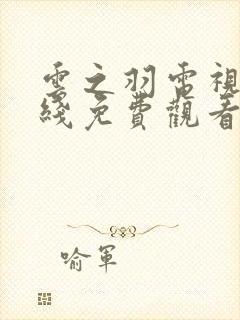 雲之羽電視
綫免費觀看
喻軍